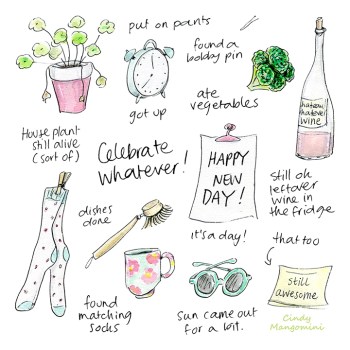 put on pants
found a
bobby pin
ate
vegetables
got up
whatever
wine
House plant
still alive
(sort of)
Celebrate
whatever!
HAPPY
NEW
DAY!
still ok
leftover
wine in
the fridge
dishes
done
it's a day!
that too
still
awesome
found
matching
socks
Sun came out
for a bit.
Cindy
Mangomini